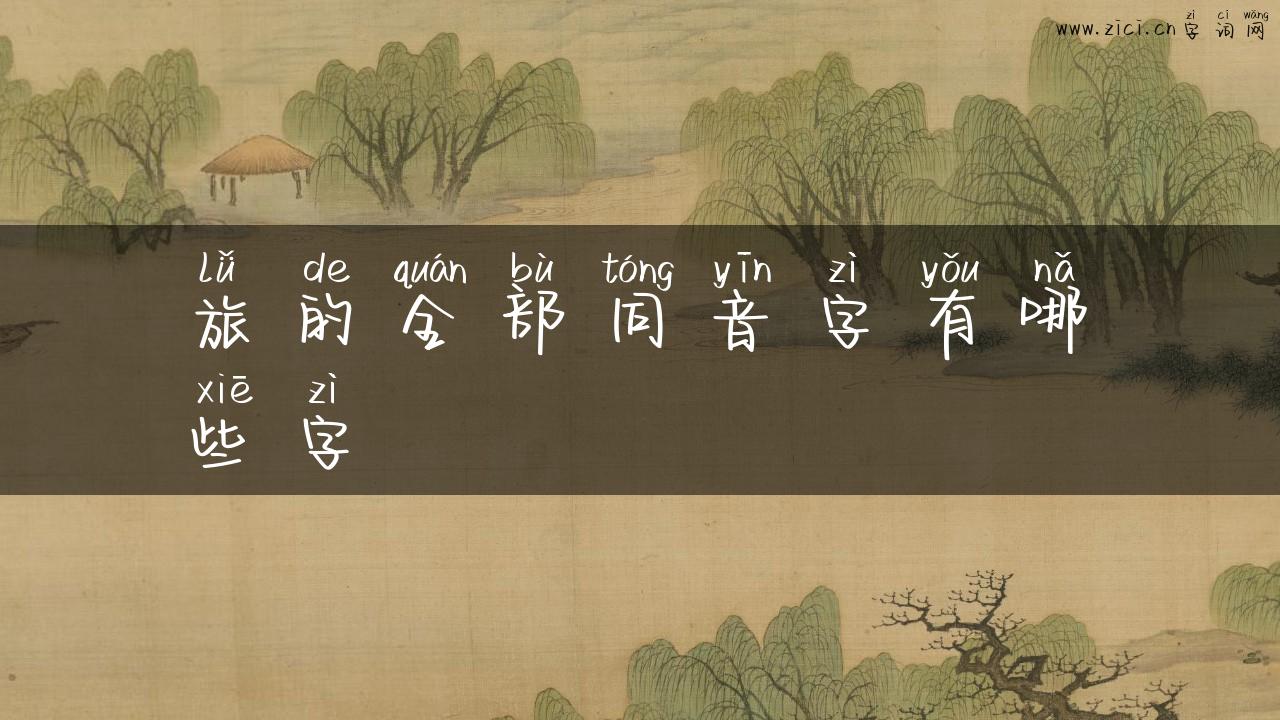 zì cí wǎng
www.zici.cn字词网
lǚ de quán bù tóng yīn zì yǒu nǎ
旅的全部同音字有哪
xiē zì
些字